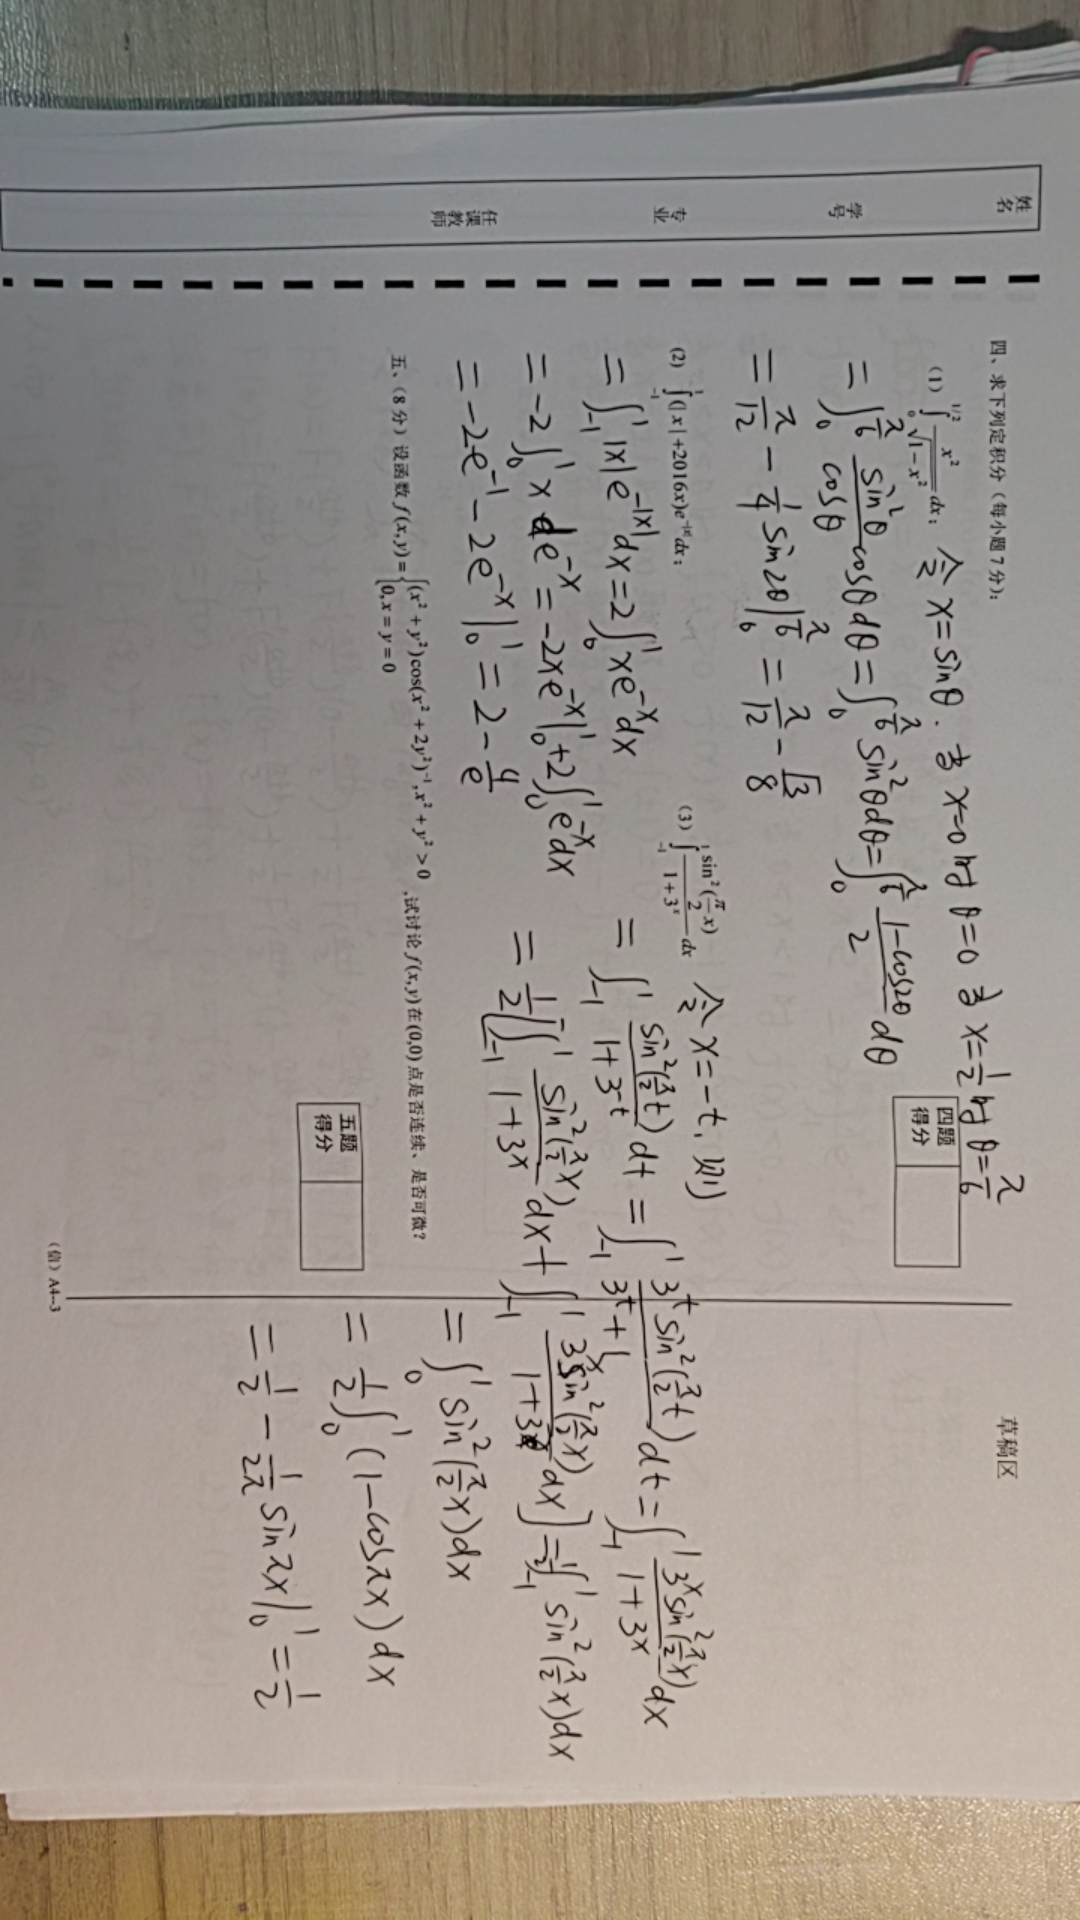 姓名
学号
专业
任课教师
四、求下列定积分（每小题7分）：
四题得分
草稿区
(1) ∫₀^{1/2} x²/√(1-x²) dx; 令 x=sinθ. 当 x=0时 θ=0 当 x=1/2 时 θ=π/6
= ∫₀^{π/6} sin²θ/cosθ cosθdθ = ∫₀^{π/6} sin²θdθ = ∫₀^{π/6} (1-cos2θ)/2 dθ
= π/12 - 1/4 sin2θ|₀^{π/6} = π/12 - √3/8
(2) ∫₋₁^1 (|x|+2016x)e^{-|x|}dx;
= ∫₋₁^1 |x|e^{-|x|}dx = 2∫₀^1 xe^{-x}dx
= -2∫₀^1 x de^{-x} = -2xe^{-x}|₀^1 + 2∫₀^1 e^{-x}dx
= -2e^{-1} - 2e^{-x}|₀^1 = 2 - 4/e
(3) ∫₋₁^1 sin²(π/2 x)/(1+3^x) dx 令 x=-t, 则
= ∫₋₁^1 sin²(π/2 t)/(1+3^{-t}) dt = ∫₋₁^1 3^t sin²(π/2 t)/(3^t+1) dt = ∫₋₁^1 3^x sin²(π/2 x)/(1+3^x) dx
= 1/2[∫₋₁^1 sin²(π/2 x)/(1+3^x) dx + ∫₋₁^1 3^x sin²(π/2 x)/(1+3^x) dx] = 1/2∫₋₁^1 sin²(π/2 x)dx
= ∫₀^1 sin²(π/2 x)dx
= 1/2 ∫₀^1 (1-cosπx)dx
= 1/2 - 1/(2π) sinπx|₀^1 = 1/2
五、（8分）设函数 f(x,y)={(x²+y²)cos(x²+2y²)⁻¹, x²+y²>0; 0, x=y=0 ,试讨论 f(x,y)在(0,0)点是否连续、是否可微?
五题得分
（信）A4--3